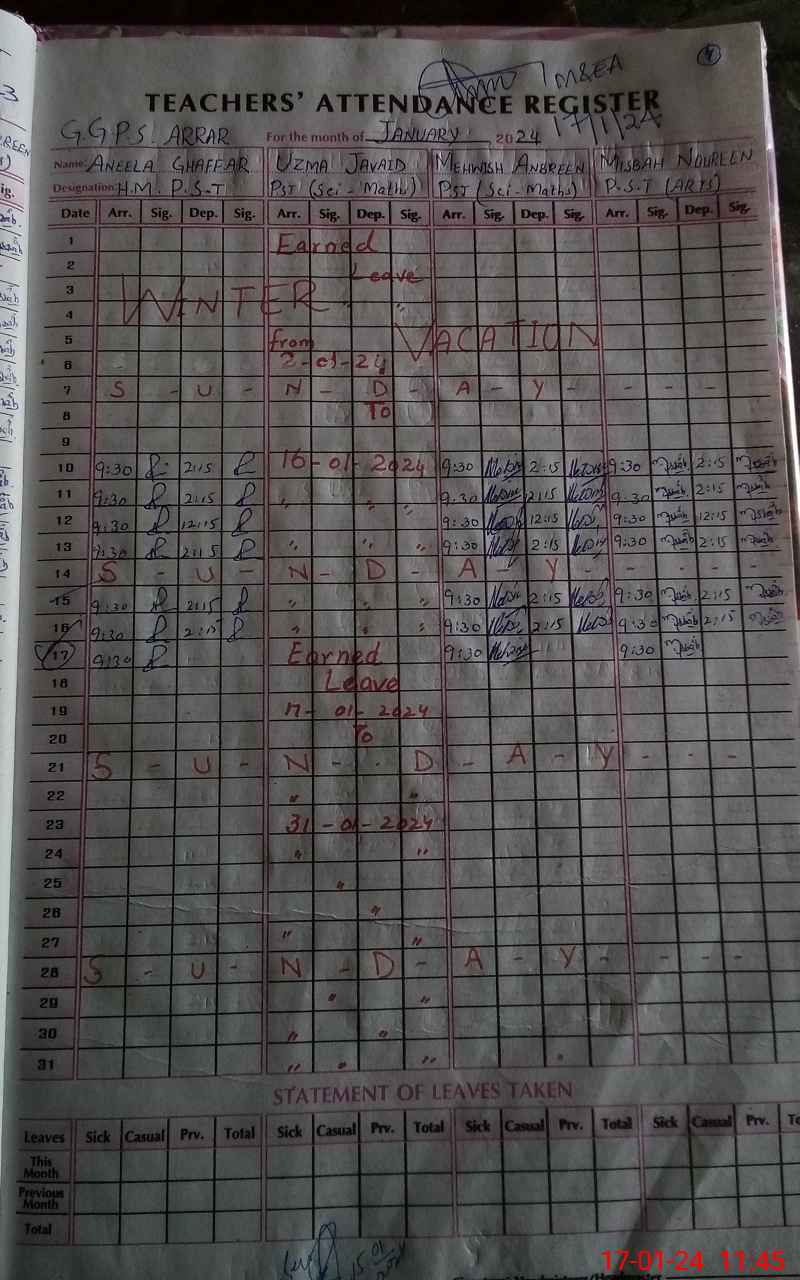 4
M&EA
TEACHERS' ATTENDANCE REGISTER
17/1/24
G.G.P.S. ARRAR For the month of JANUARY 2024
Name: ANEELA GHAFFAR UZMA JAVAID MEHWISH ANBREEN MISBAH NOUREEN
Designation: H.M. P.S.T PST (Sci-Maths) PST (Sci-Maths) P.S.T (ARTS)
Date Arr. Sig. Dep. Sig. Arr. Sig. Dep. Sig. Arr. Sig. Dep. Sig. Arr. Sig. Dep. Sig.
1 Earned
2 Leave
3 WINTER
4 "
5 from VACATION
6 2-01-24
7 S - U - N - D - A - Y - - - - -
8 To
9
10 9:30 2:15 16-01-2024 9:30 2:15 9:30 2:15
11 9:30 2:15 " " " 9.30 2:15 9.30 2:15
12 9:30 12:15 9:30 12:15 9:30 12:15
13 9:30 2:15 " " " 9:30 2:15 9:30 2:15
14 S - U - N - D - A - Y - - - - -
15 9:30 2:15 " " " 9:30 2:15 9:30 2:15
16 9:30 2:15 " " " 9:30 2:15 9:30 2:15
17 9:30 Earned 9:30 9:30
18 Leave
19 17-01-2024
20 To
21 S - U - N - - D - A - Y - - - -
22 " "
23 31-01-2024
24 " "
25 "
26 "
27 " "
28 S - U - N - D - A - Y - - - - -
29 " "
30 " "
31 " " "
STATEMENT OF LEAVES TAKEN
Leaves Sick Casual Prv. Total Sick Casual Prv. Total Sick Casual Prv. Total Sick Casual Prv.
This Month
Previous Month
Total
17-01-24 11:45